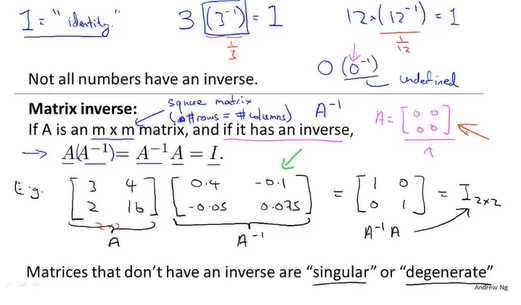 1 = "identity." 3 (3⁻¹) = 1 12 × (12⁻¹) = 1
1/3 1/12
0 (0⁻¹) undefined
Not all numbers have an inverse.
Matrix inverse:
square matrix
(#rows = #columns) A⁻¹
If A is an m x m matrix, and if it has an inverse,
A = [0 0; 0 0]
→ A(A⁻¹) = A⁻¹A = I.
E.g. [3 4; 2 16] [0.4 -0.1; -0.05 0.075] = [1 0; 0 1] = I 2×2
2×2
A A⁻¹ A⁻¹A
Matrices that don't have an inverse are "singular" or "degenerate"
Andrew Ng